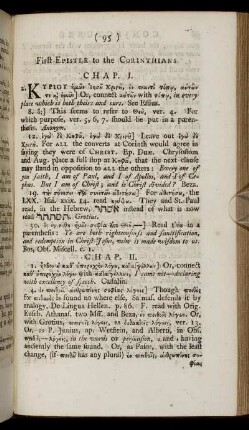 ( 95 )
First EPISTLE to the CORINTHIANS.
CHAP. I.
2. ΚΥΡΙΟΥ ἡμῶν Ἰησοῦ Χριστοῦ, ἐν παντὶ τόπῳ, αὐτῶν
τε καὶ ἡμῶν] Or, connect αὐτῶν with τόπῳ, in every
place which is both theirs and ours. See Estius.
8. ὃς] This seems to refer to Θεῷ, ver. 4. For
which purpose, ver. 5, 6, 7. should be put in a paren-
thesis. Anonym.
12. ἐγὼ δὲ Κηφᾶ, ἐγὼ δὲ Χριστοῦ] Leave out ἐγὼ δὲ
Χριστοῦ. For ALL the converts at Corinth would agree in
saying they were of CHRIST. Ep. Due. Chrysostom
and Aug. place a full stop at Κηφᾶ, that the next clause
may stand in opposition to all the others: Every one of
you saith, I am of Paul, and I of Apollos, and I of Ce-
phas. But I am of Christ; and is Christ divided? Beza.
19. τὴν σύνεσιν τῶν συνετῶν ἀθετήσω] For ἀθετήσω, the
LXX. Isai. xxix. 14. read κρύψω. They and St. Paul
read, in the Hebrew, instead of what is now
read Grotius.
30. Read this in a
parenthesis: Ye are both righteousness, and sanctification,
and redemption in Christ Jesus, who is made wisdom to us.
Boy, Obs. Miscell. c. 1.
CHAP. II.
1. ἦλθον οὐ καθ᾽ ὑπεροχὴν λόγου, καταγγέλλων] Or, connect
καθ᾽ ὑπεροχὴν λόγου with καταγγέλλων, I came not—declaring
with excellency of speech. Castalio.
4. ἐν πειθοῖς ἀνθρωπίνης σοφίας λόγοις] Though πειθὸς
for is found no where else, Salmas. defends it by
analogy. De Lingua Hellen. p. 86. F. read with Orig.
Euseb. Athanas. two MSS. and Beza, Or,
with Grotius, ver. 13.
Or, as P. Junius, ap. Wetstein, and Alberti, in Obs.
in the words or persuasion, and having
anciently the same sound. Or, as Faius, with the least
change, (if πειθὼ has any plural) ἐν πειθοῖς, ἀνθρωπίνης σο-
φίας